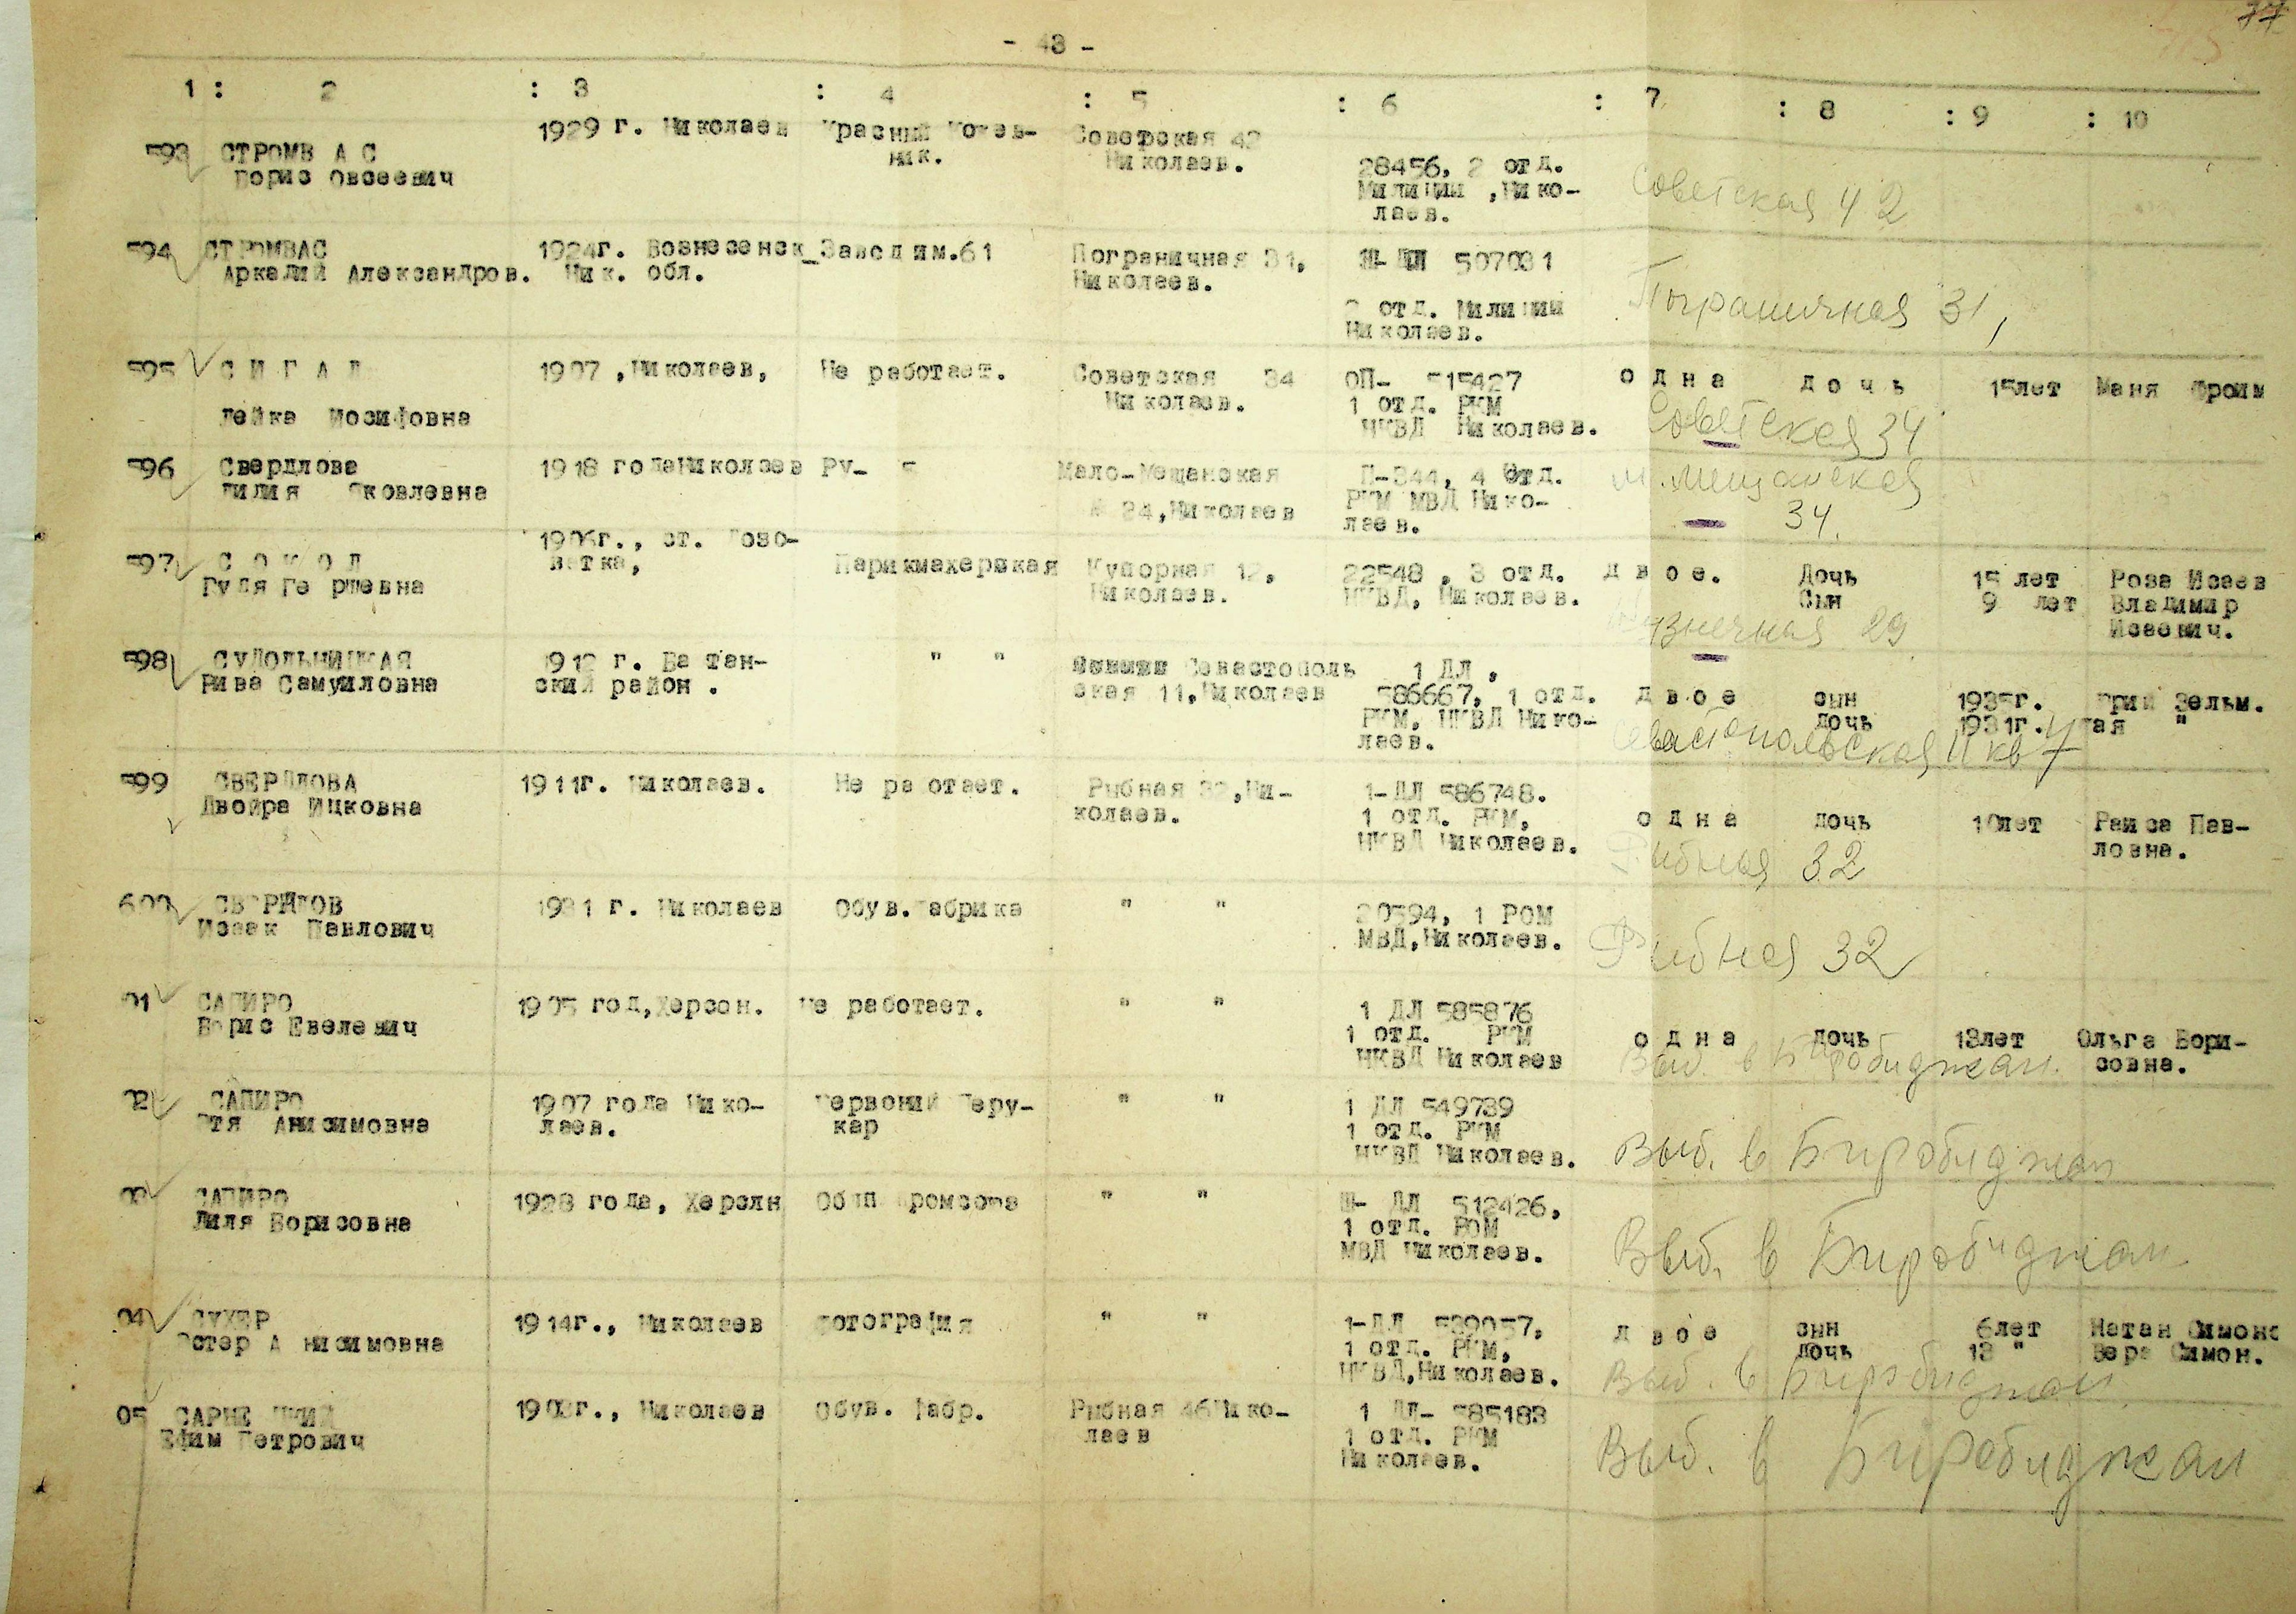 77
- 43 -
1 : 2 : 3 : 4 : 5 : 6 : 7 : 8 : 9 : 10
593 СТРОМВ А С 1929 г. Николаев Красный Кожев- Советская 42
Борис Овсеевич ник. Николаев. 28456, 2 отд.
Милиции , Нико-
лаев.
Советская 42
594 СТРОМВАС 1924г. Вознесенск_Завод им.61 Пограничная 31, Ш- ДЛ 507031
Аркадий Александров. Ник. обл. Николаев.
2 отд. Милиции
Николаев.
Пограничная 31,
595 С И Г А Л 1907 ,Николаев, Не работает. Советская 34 ОП- 515427 о д н а д о ч ь 15лет Маня Фроим
Николаев. 1 отд. РКМ
Лейка Иосифовна НКВД Николаев.
Советская 34
596 Свердлова 1918 года Николаев РУ- 5 Мало-Мещанская П-344, 4 Отд.
Лилия Яковлевна № 34,Николаев РКМ МВД Нико-
лаев.
М. Мещанская
34.
597 С О К О Л 1906г., ст.
ветка, Парикмахерская Купорная 12, 22548 , 3 отд. д в о е. Дочь 15 лет Роза Исаев
Гудя Ге ршевна Николаев. НКВД, Николаев. Сын 9 лет Владимир
Исаевич.
Кузнечная 29
598 СУДОЛЬНИЦКАЯ 1912 г. Ба тан- " " Севастополь 1 ДЛ ,
Рива Самуиловна ский район . ская 11,Николаев 586667, 1 отд. д в о е сын 1935г. Зельм.
РКМ, НКВД Нико- дочь 1931г. "
лаев.
Севастопольская 11 кв 7
599 СВЕРДЛОВА 1911г. Николаев. Не ра отает. Рыбная 32,Ни- 1-ДЛ 586748.
Двойра Ицковна колаев. 1 отд. РКМ, о д н а дочь 10лет Раиса Пав-
НКВД Николаев. ловна.
Рыбная 32
600 СВЕРДЛОВ 1931 г. Николаев Обув.Фабрика " " 20594, 1 РОМ
Исаак Павлович МВД,Николаев.
Рыбная 32
01 САПИРО 1905 год,Херсон. Не работает. " " 1 ДЛ 585876
Борис Евелевич 1 отд. РКМ о д н а дочь 13лет Ольга Бори-
НКВД Николаев совна.
Выб. в Биробиджан.
02 САПИРО 1907 года Нико- Первоний Перу- " " 1 ДЛ 549739
Этя Анисимовна лаев. кар 1 отд. РКМ
НКВД Николаев.
Выб. в Биробиджан
03 САПИРО 1928 года, Херсон Общ промсоюза " " Ш- ДЛ 512426,
Лиля Борисовна 1 отд. РОМ
МВД Николаев.
Выб. в Биробиджан
04 СУХЕР 1914г., Николаев фотография " " 1-ДЛ 539057, д в о е сын 6лет Натан Симоно
Эстер А нисимовна 1 отд. РКМ, дочь 13 " Вера Симон.
НКВД,Николаев.
Выб. в Биробиджан
05 1903г., Николаев Обув. фабр. Рыбная 46 Нико- 1 ДЛ- 585183
Ефим Петрович лаев 1 отд. РКМ
Николаев.
Выб. в Биробиджан